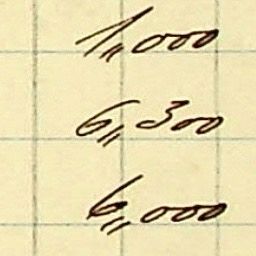 1,,000
6,,300
6,,000